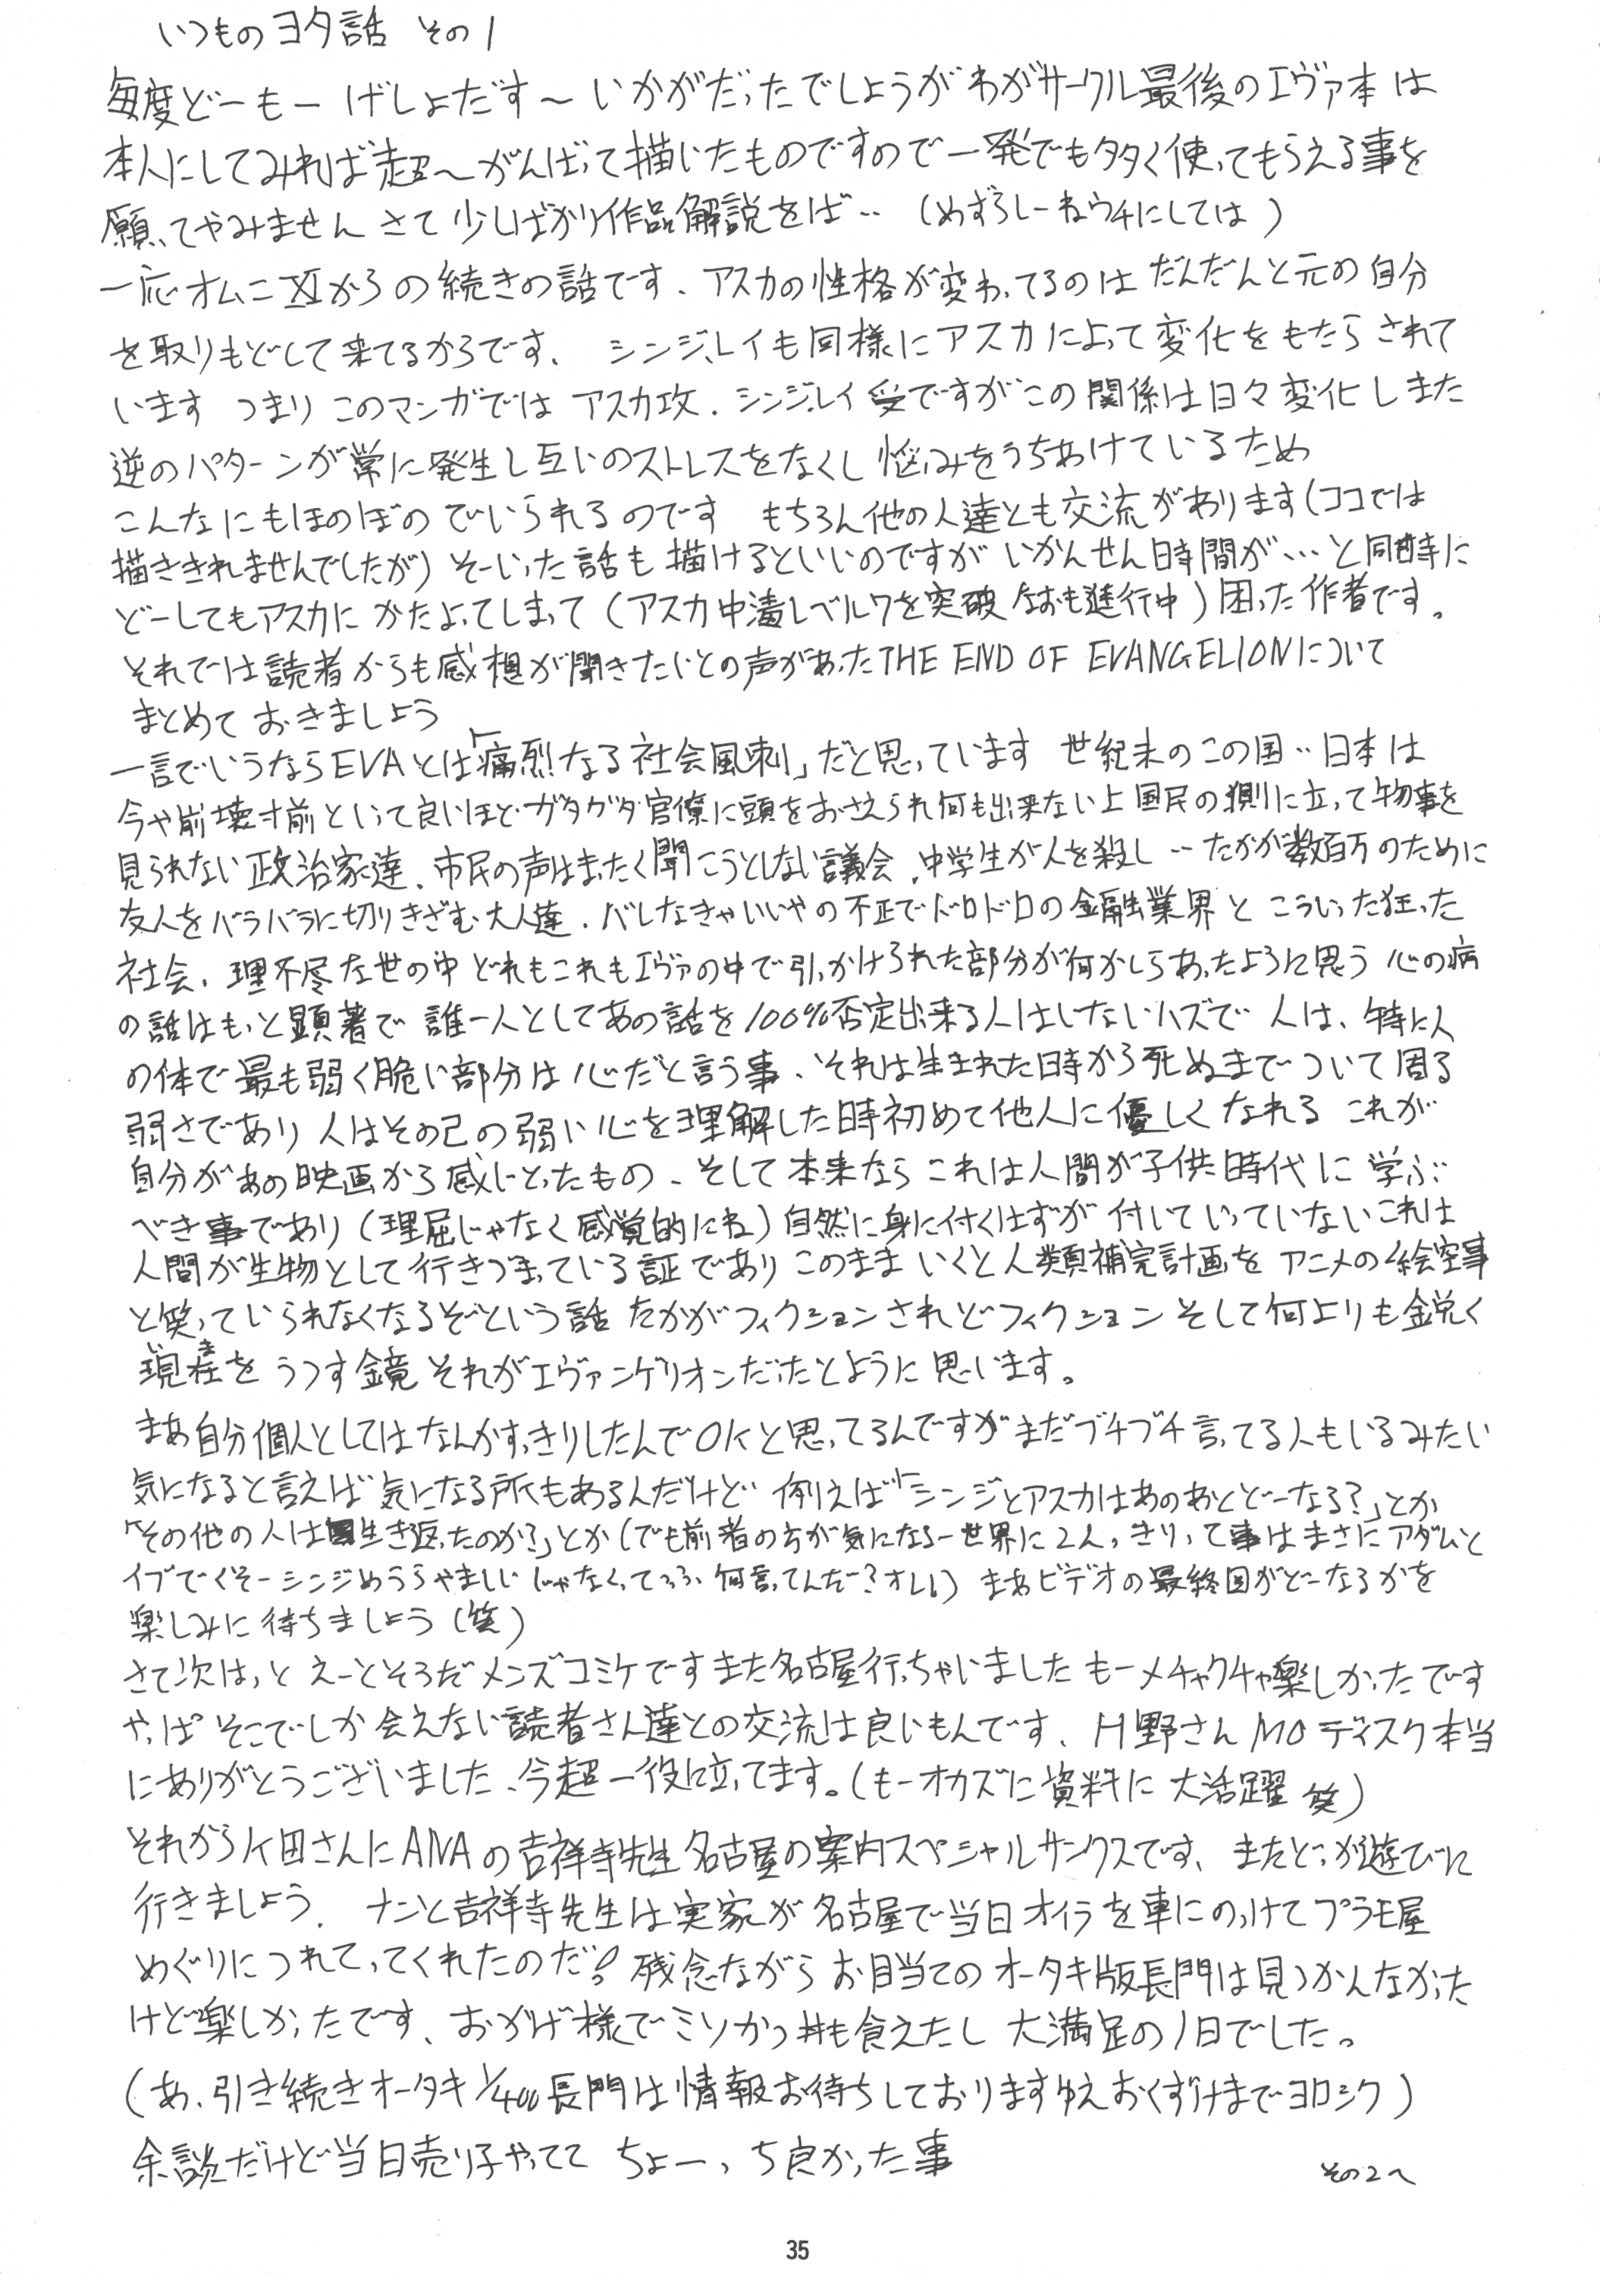 いつものヨタ話 その1
毎度どーもー げしょだす〜いかがだったでしょうがわがサークル最後のエヴァ本は
本人にしてみれば超〜がんばって描いたものですので一発でも多く使ってもらえる事を
願ってやみません さて少しばかり作品解説をば‥ (めずらしーねウチにしては)
一応オムニⅪからの続きの話です、アスカの性格が変わってるのは だんだんと元の自分
を取りもどして来てるからです、 シンジ、レイも同様にアスカによって変化をもたらされて
います つまり このマンガでは アスカ攻、シンジ、レイ受ですがこの関係は日々変化しまた
逆のパターンが常に発生し互いのストレスをなくし悩みをうちあけているため
こんなにもほのぼのでいられるのです もちろん他の人達とも交流があります(ココでは
描ききれませんでしたが) そーいった話も描けるといいのですが いかんせん時間が…と同時に
どーしてもアスカに かたよってしまって (アスカ中毒レベル7を突破 なおも進行中)困った作者です。
それでは読者からも感想が聞きたいとの声があったTHE END OF EVANGELIONについて
まとめておきましょう
一言でいうならEVAとは「痛烈なる社会風刺」だと思っています 世紀末のこの国‥日本は
今や崩壊寸前といって良いほどガタガタ官僚に頭をおさえられ何も出来ない上国民の側に立って物事を
見られない政治家達、市民の声はまったく聞こうとしない議会、中学生が人を殺し‥たかが数百万のために
友人をバラバラに切りきざむ大人達、バレなきゃいいやの不正でドロドロの金融業界と こういった狂った
社会、理不尽な世の中 どれもこれもエヴァの中で引っかけられた部分が何かしらあったように思う 心の病
の話はもっと顕著で 誰一人としてあの話を100%否定出来る人はいないハズで 人は、特に人
の体で最も弱く脆い部分は心だと言う事、それは生まれた時から死ぬまでついて周る
弱さであり 人はその己の弱い心を理解した時初めて他人に優しくなれる これが
自分があの映画から感じとったもの、そして本来なら これは人間が子供時代に学ぶ
べき事であり(理屈じゃなく感覚的にね)自然に身に付くはずが 付いていっていない これは
人間が生物として行きづまっている証であり このままいくと人類補完計画を アニメの絵空事
と笑っていられなくなるぞという話 たかがフィクションされどフィクション そして何よりも鋭く
現在をうつす鏡 それがエヴァンゲリオンだったとように思います。
まあ自分個人としてはなんかすっきりしたんでOKと思ってるんですがまだブチブチ言ってる人もいるみたい
気になると言えば気になる所もあるんだけど 例えば「シンジとアスカはあのあとどーなる?」とか
「その他の人は生き返ったのか?」とか(でも前者の方が気になるー世界に2人っきりって事はまさにアダムと
イブでくそーシンジめうらやましい じゃなくってっふ、何言ってんだー?オレ!) まあビデオの最終回がどーなるかを
楽しみに待ちましょう(笑)
さて次はっと えーとそうだメンズコミケです また名古屋行っちゃいました もーメチャクチャ楽しかったです
やっぱ そこでしか会えない読者さん達との交流は良いもんです、H野さんMOディスク本当
にありがとうございました、今超一役に立ってます。(もーオカズに資料に大活躍 笑)
それからK田さんにANAの吉祥寺先生名古屋の案内スペシャルサンクスです、またどっか遊びに
行きましょう、 ナント吉祥寺先生は実家が名古屋で当日オイラを車にのっけてプラモ屋
めぐりにつれてってくれたのだ! 残念ながらお目当てのオータキ版長門は見つかんなかった
けど楽しかったです、おかげ様でミソかつ丼も食えたし 大満足の1日でした。
(あ、引き続きオータキ1/400長門は情報お待ちしておりますゆえおくずけまでヨロシク)
余談だけど当日売り子やってて ちょーっち良かった事
その2へ
35